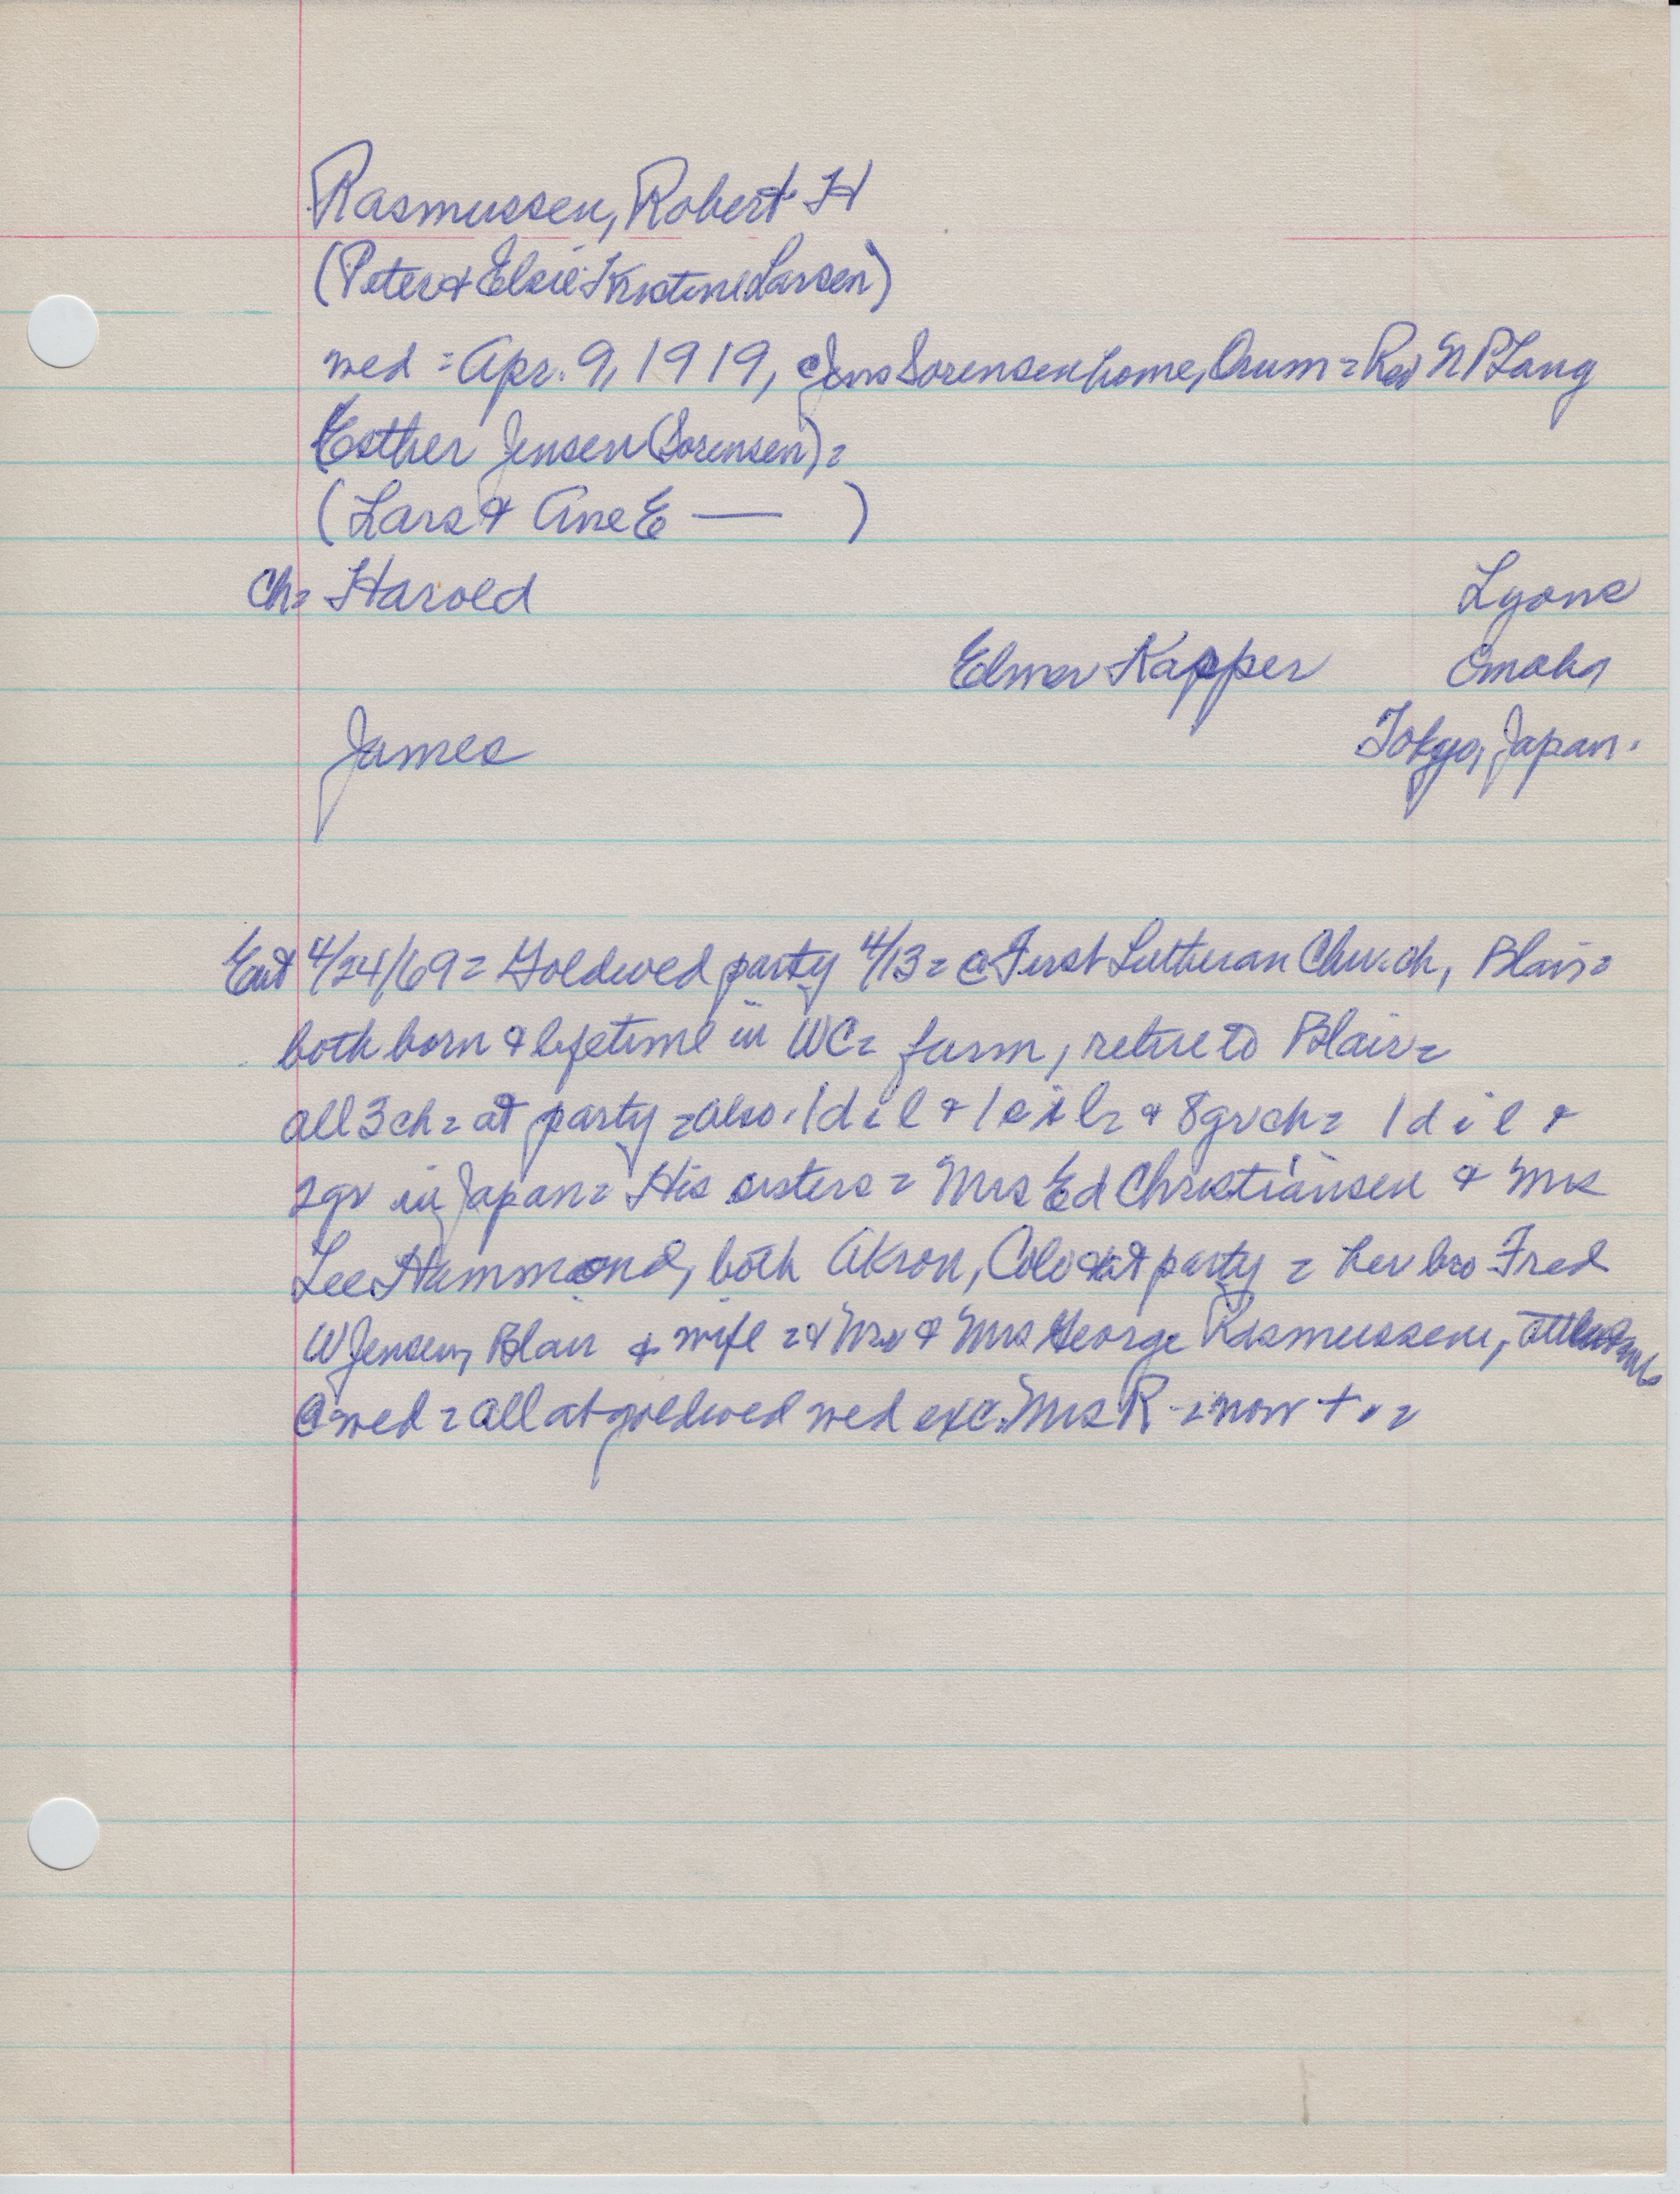 Rasmussen, Robert H
(Peter & Elsie Kristine Larsen)
wed = Apr. 9, 1919, @ Jens Sorensen home, Orum = Rev N P Lang
Esther Jensen (Sorensen) =
(Lars & Ane E — )
Ch = Harold Lyons
Elmer Kapper Omaha
James Tokyo, Japan.
Ent 4/24/69 = Goldwed party 4/13 = @ First Lutheran Church, Blair =
both born & lifetime in WC = farm, retire to Blair =
all 3 ch = at party = also 1 d i l & 1 s i l = & 8 grch = 1 d i l &
2 gr in Japan = His sisters = Mrs Ed Christiansen & Mrs
Lee Hammond, both Akron, Colo at party = her bro Fred
W Jensen, Blair & wife = & Mr & Mrs George Rasmussen,
@ wed = all at goldwed wed exc. Mrs R = now + =